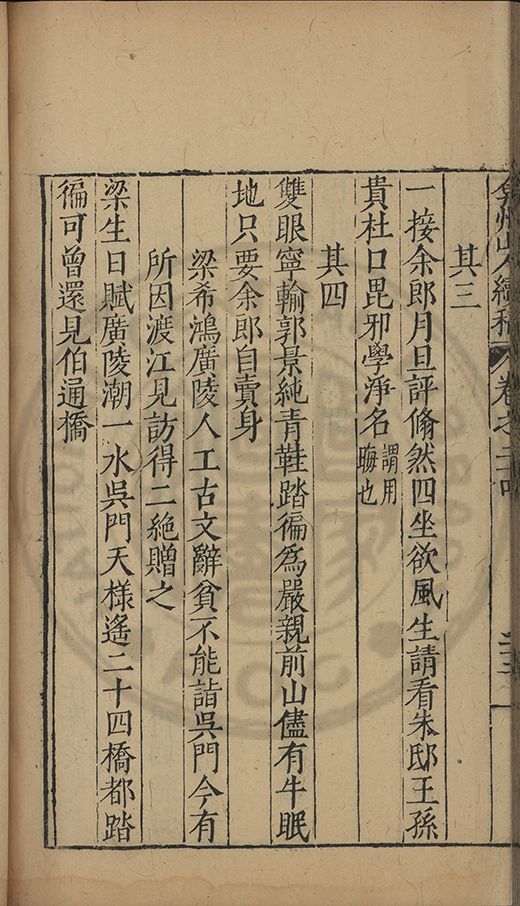 弇州山人續稿 卷之二十四
其三
一接余郎月旦評翛然四坐欲風生請看朱邸王孫
貴杜口毘邪學淨名謂用晦也
其四
雙眼寧輸郭景純青鞋踏徧為嚴親前山儘有牛眠
地只要余郎自賣身
梁希鴻廣陵人工古文辭貧不能詣吳門今有
所因渡江見訪得二絕贈之
梁生日賦廣陵潮一水吳門天樣遙二十四橋都踏
徧可曾還見伯通橋